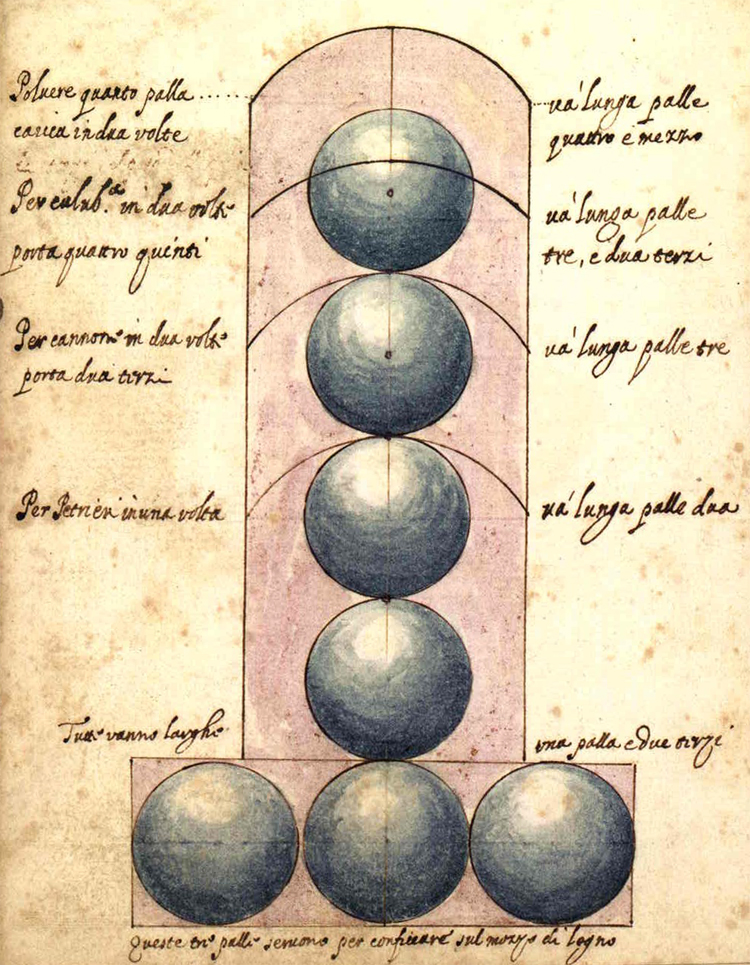 Poluere quanto palla
carica in dua volte
uá lunga palle
quattro e mezzo
Per culub.ª in dua volte
porta quattro quinti
uá lunga palle
tre, e dua terzi
Per cannone in dua volte
porta dua terzi
uá lunga palle tre
Per Petrieri in una volta
uá lunga palle dua
Tutte vanno larghe
una palla e due terzi
Queste tre palle seruono per conficcare sul mozzo di legno